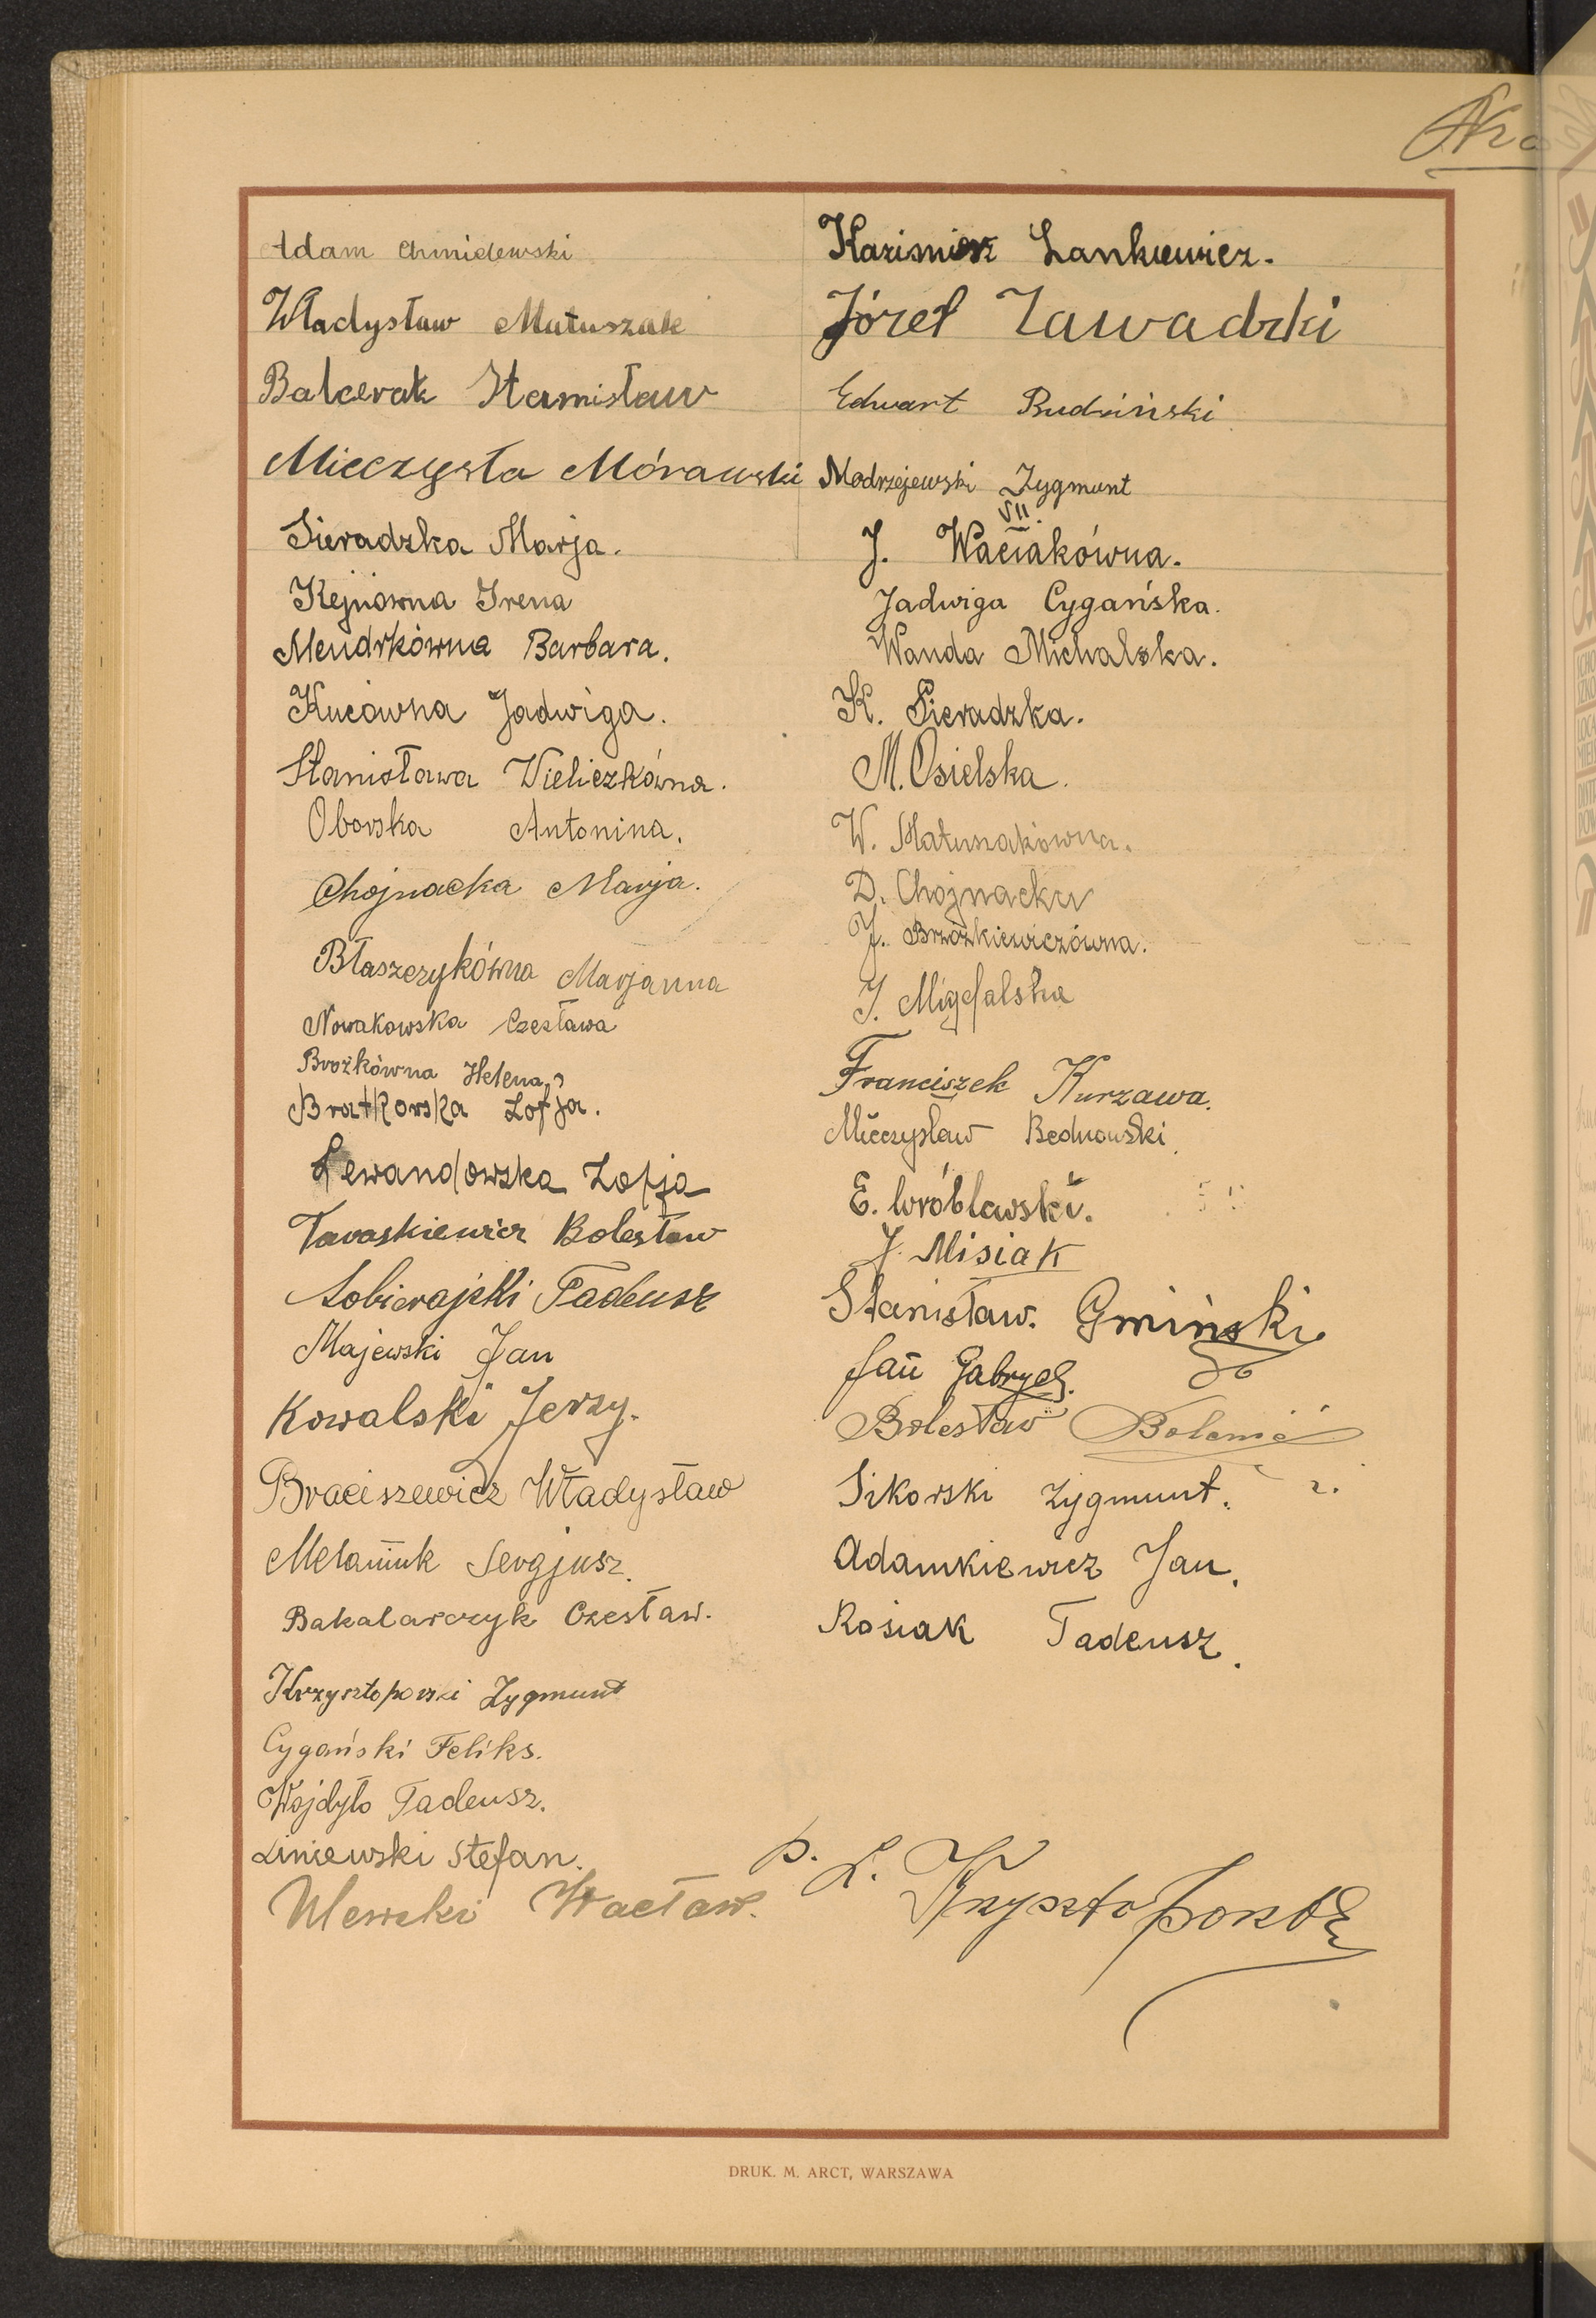 Adam Chmielewski
Władysław Matuszak
Balcerak Stanisław
Mieczysła Mórawski
Sieradzka Marja.
Kejnówna Irena
Mendrkówna Barbara.
Kucówna Jadwiga.
Stanisława Wieliczkówna.
Oborska Antonina.
Chojnacka Marja.
Błaszczykówna Marjanna
Nowakowska Czesława
Brożkówna Helena
Bratkowska Zofja.
Lewandowska Zofja
Taraskiewicz Bolesław
Sobierajski Tadeusz
Majewski Jan
Kowalski Jerzy.
Braciszewicz Władysław
Melaniuk Sergjusz.
Bakalarczyk Czesław.
Krzysztoporski Zygmunt
Cygański Feliks.
Wojdyło Tadeusz.
Liniewski Stefan.
Ulewski Wacław.
Kazimierz Lankiewicz.
Józef Zawadzki
Edwart Budziński
Modrzejewski Zygmunt
VII.
J. Waciakówna.
Jadwiga Cygańska.
Wanda Michalska.
K. Sieradzka.
M. Osielska.
W. Matuszakówna.
D. Chojnacka
J. Brzózkiewiczówna.
J. Migdalska
Franciszek Kurzawa.
Mieczysław Bednowski.
E. Wróblewski.
J. Misiak
Stanisław. Gmiński
Jan Gabryel.
Bolesław
Sikorski Zygmunt.
Adamkiewicz Jan.
Rosiak Tadeusz.
p. L.
DRUK. M. ARCT, WARSZAWA